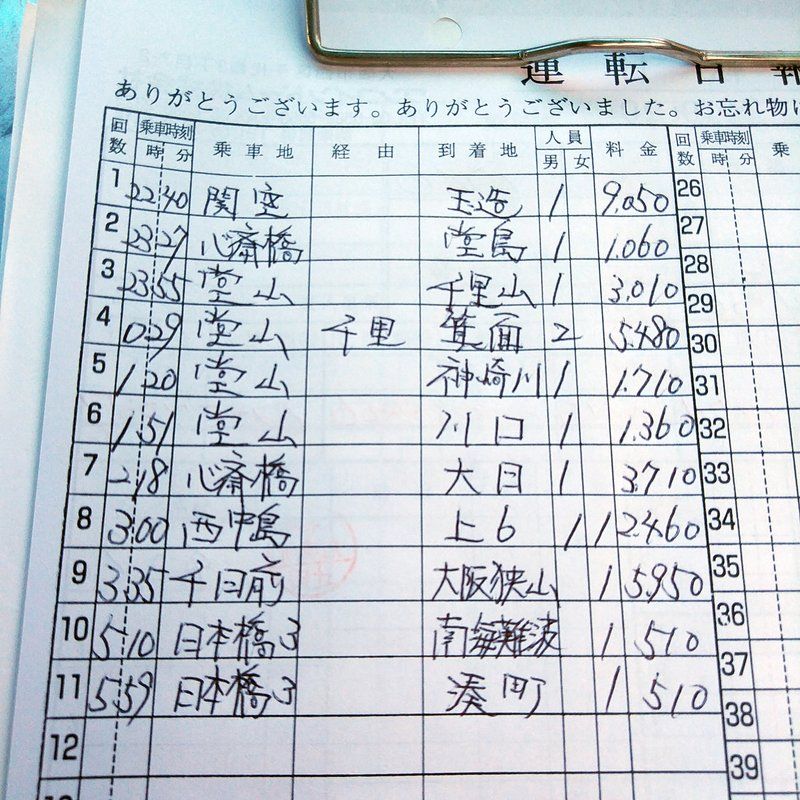 運転日報
ありがとうございます。ありがとうございました。お忘れ物は
回数 乗車時刻 時 分 乗車地 経由 到着地 人員 男 女 料金 回数 乗車時刻 時 分 乗
1 22 40 関空 玉造 1 9,050 26
2 23 27 心斎橋 堂島 1 1,060 27
3 23 55 堂山 千里山 1 3,010 28
4 0 29 堂山 千里 箕面 2 5,480 29
5 1 20 堂山 神崎川 1 1,710 30
6 1 51 堂山 川口 1 1,360 31
7 2 18 心斎橋 大日 1 3,710 32
8 3 00 西中島 上6 1 1 2,460 33
9 3 35 千日前 大阪狭山 1 5,950 34
10 5 10 日本橋3 南海難波 1 510 35
11 5 59 日本橋3 湊町 1 510 36
12 37
38
39